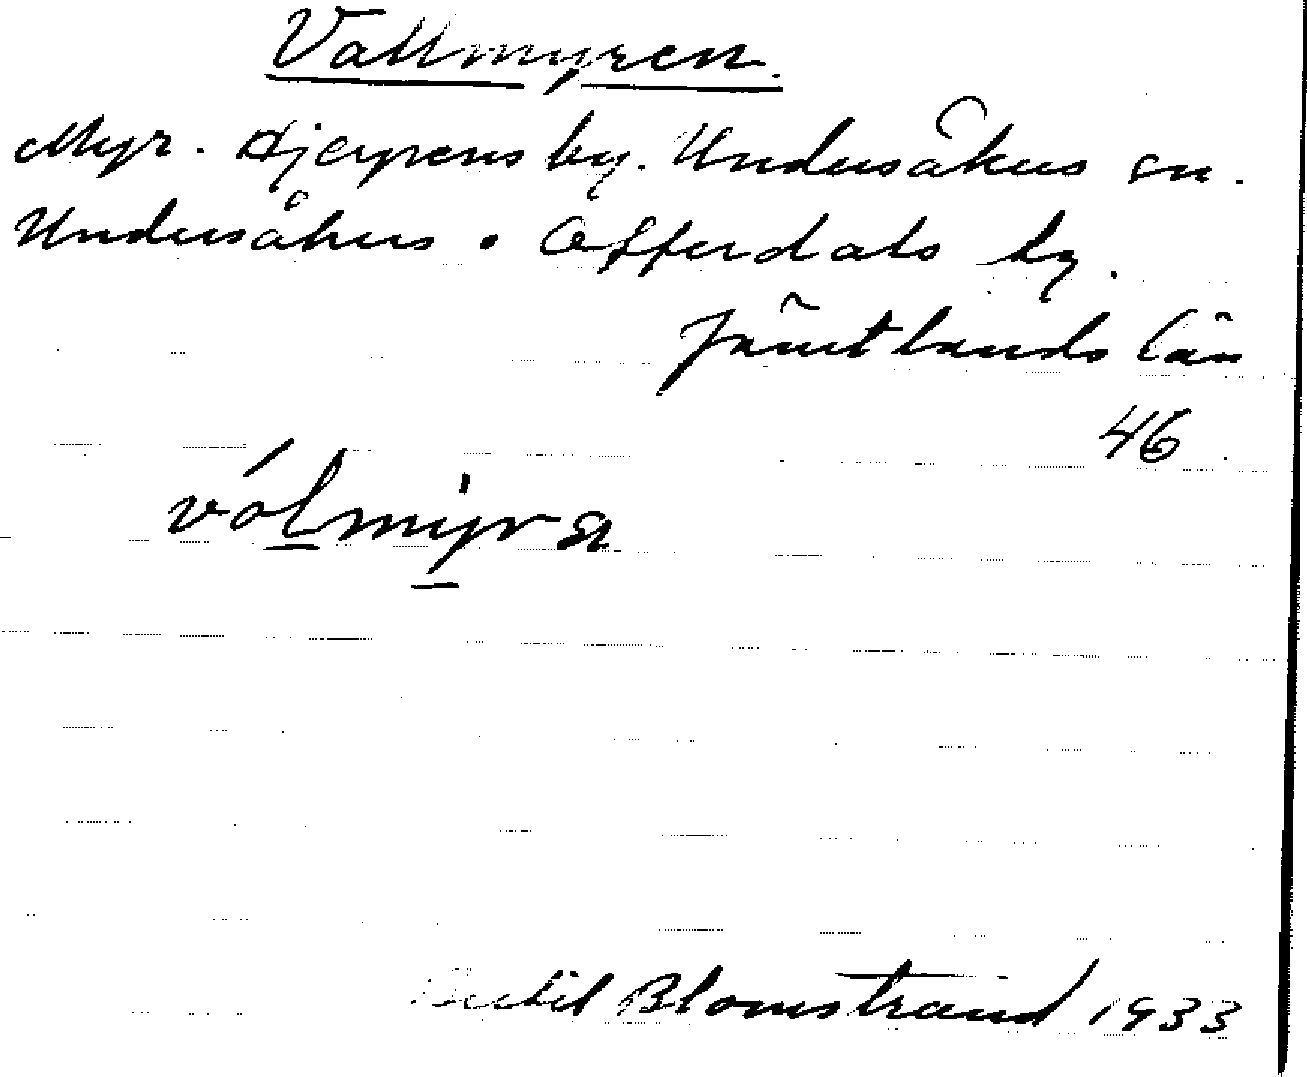 Vallmyren.
Myr. by. Undersåkers sn.
Undersåkers o Offerdals by.
Jämtlands län
46
vólmyra
Blomstrand 1933